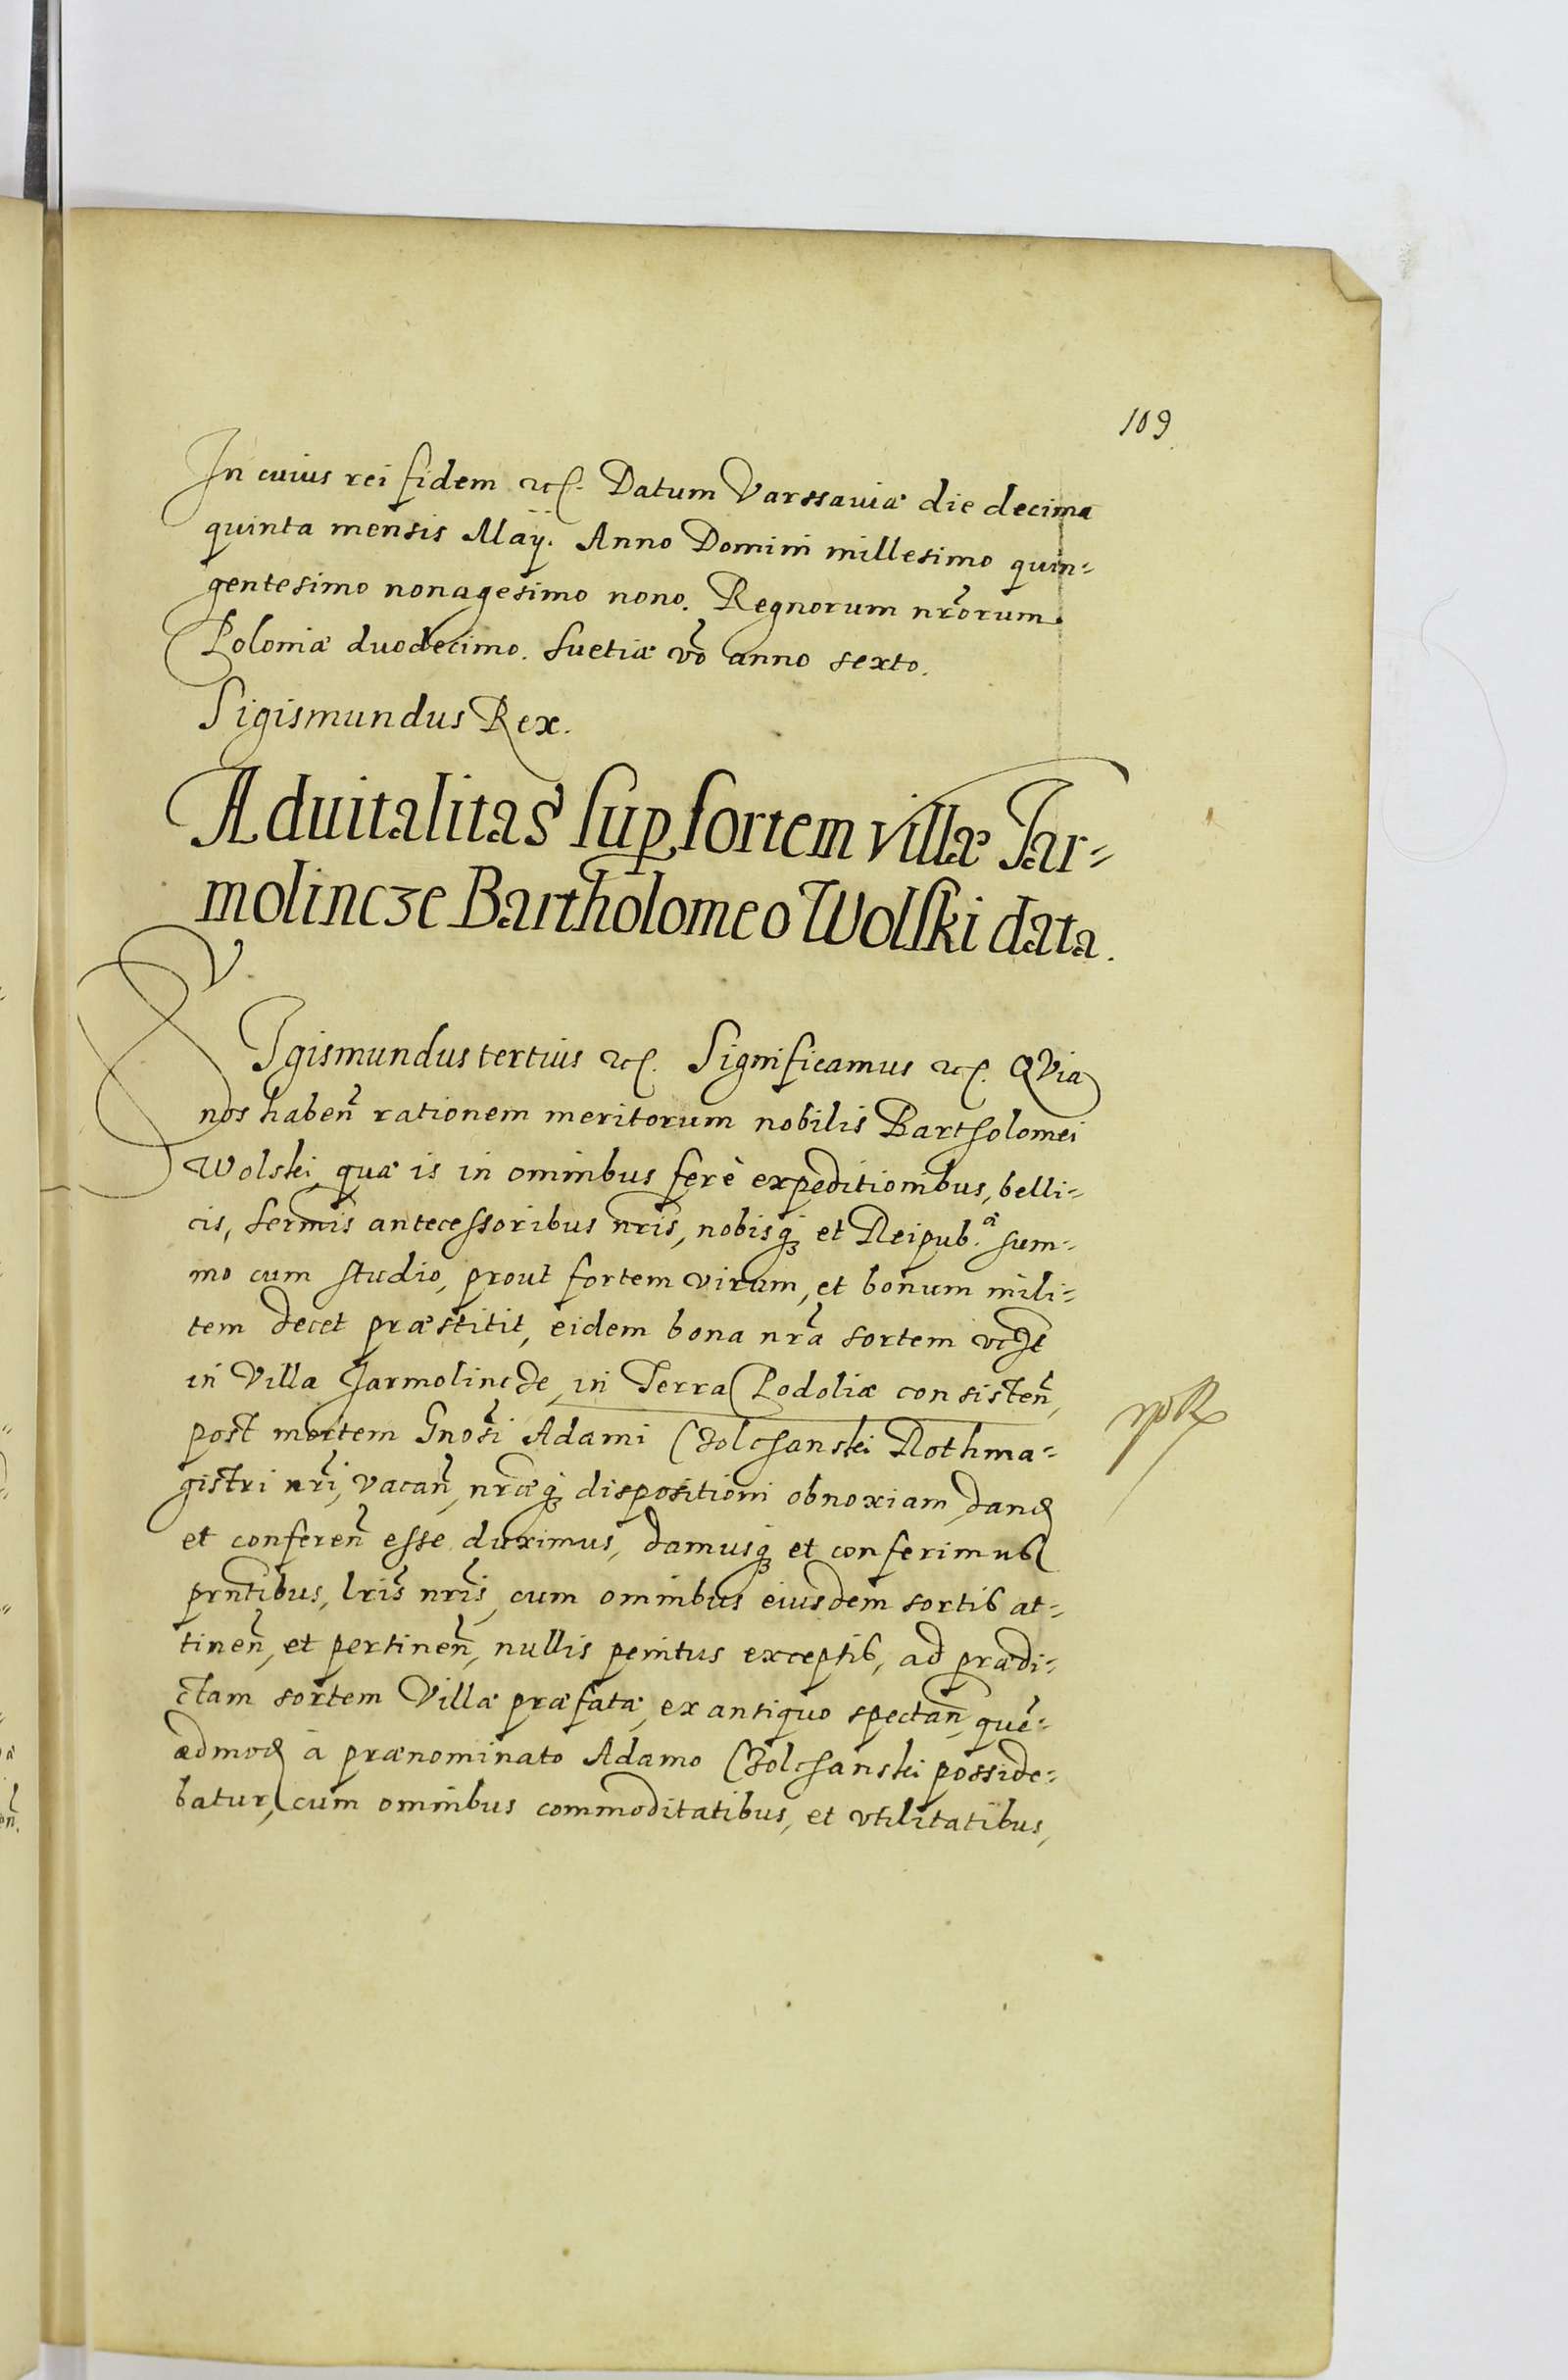 109
In cuius rei fidem etc. Datum Varssauiæ die decima
quinta mensis Maij. Anno Domini millesimo quin=
gentesimo nonagesimo nono. Regnorum nrõrum
Poloniæ duodecimo. Suetiæ võ anno sexto.
Sigismundus Rex.
Aduitalitas sup sortem villæ Jar=
molincze Bartholomeo Wolski data.
SIgismundus tertius etc. Significamus etc. QVia
nos habeñ rationem meritorum nobilis Bartholomei
Wolski, quæ is in omnibus ferè expeditionibus, belli=
cis, sermis antecessoribus nris, nobisq; et Reipub. sum=
mo cum studio, prout fortem virum, et bonum mili=
tem decet præstitit, eidem bona nra sortem
in Villa Jarmolincze, in Terra Podoliæ consisteñ,
post mortem Gnosi Adami Czolchanski Rothma=
gistri nri, vacañ, nræq; dispositioni obnoxiam, dand
et confereñ esse duximus, damusq; et conferimus
prntibus, lris nris, cum omnibus eiusdem sortis at=
tineñ, et pertineñ, nullis penitus exceptis, ad prædi=
ctam sortem Villæ præfatæ, ex antiquo spectañ, quē=
admod à prænominato Adamo Czolchanski posside=
batur, cum omnibus commoditatibus, et vtilitatibus,